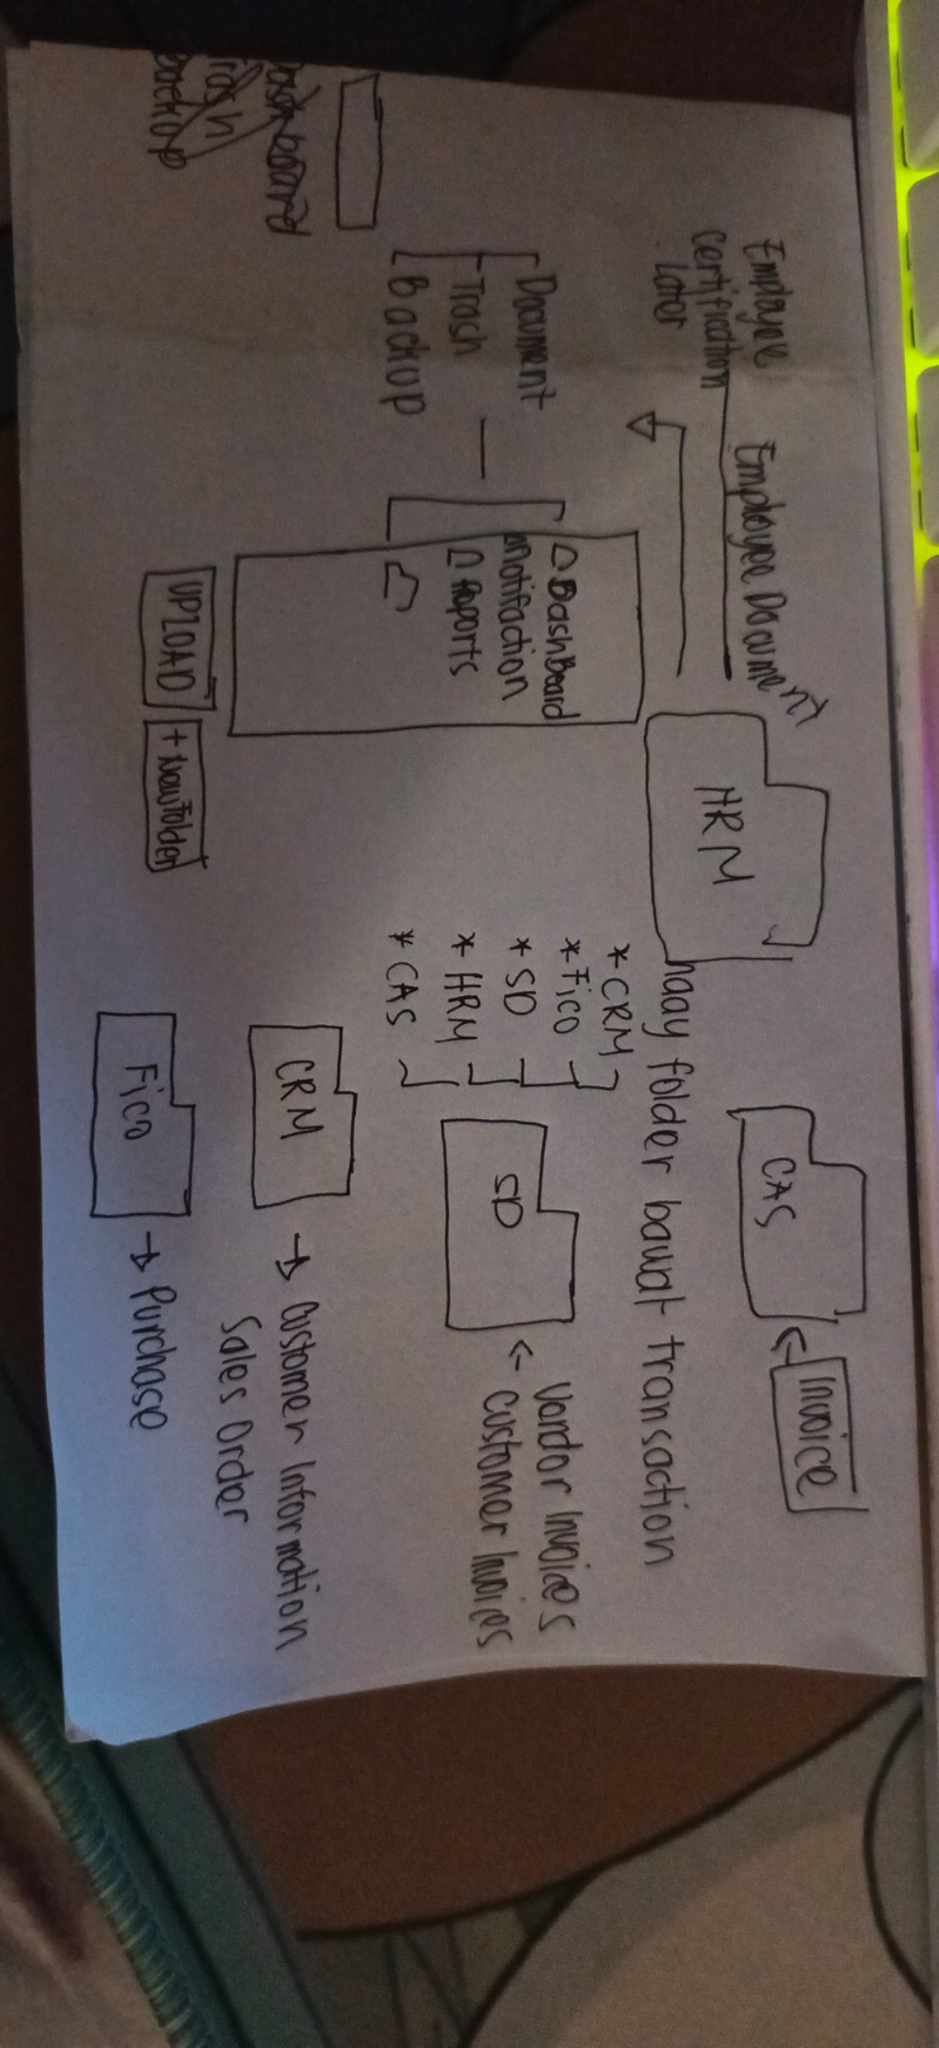 Employee
certification
Later
Employee Document
HRM
CAS
Invoice
haay folder bawat transaction
* CRM
* Fico
* SD
* HRM
* CAS
SD
Vendor Invoices
Customer Invoices
Document
Trash
Backup
DashBoard
Notifaction
Reports
Dashboard
Trash
backup
UPLOAD
+ New Folder
CRM
Customer Information
Sales Order
Fico
Purchase